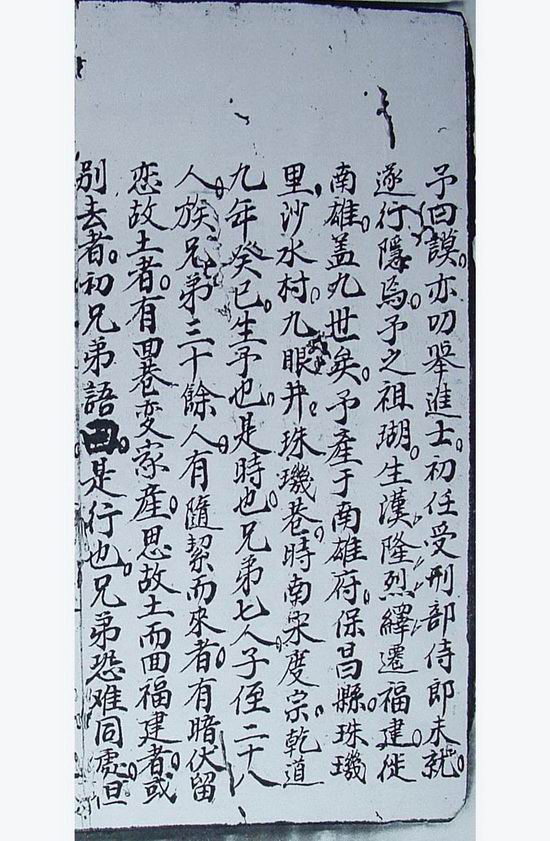 予曰謨。亦叨舉進士。初任受刑部侍郎未就。
遂行隱焉。予之祖瑚。生漢隆烈繹遷福建徙
南雄。蓋九世矣。予產于南雄府。保昌縣。珠璣
里。沙水村。九眼井。珠璣巷。時南宋度宗。乾道
九年癸巳。生予也。是時也。兄弟七人子侄二十八
人。族兄弟三十餘人。有隨挈而來者。有暗伏留
恋故土者。有回巷变家產。思故土而回福建者。或
別去者。初兄弟語曰。是行也。兄弟恐难同處。但